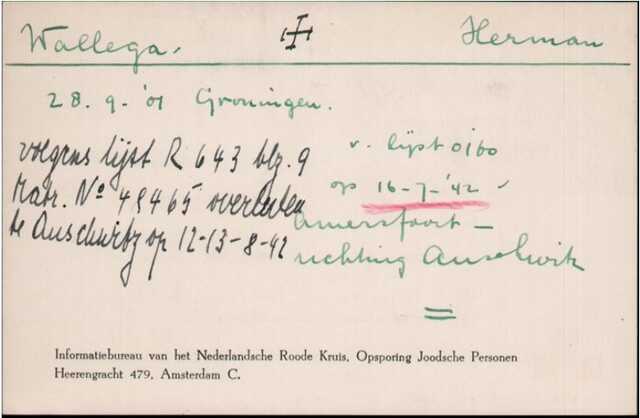 Wallega. Herman
28. 9. '01 Groningen.
v. lijst 0160
op 16-7-'42
Amersfoort –
richting Auschwitz
volgens lijst R 643 blz. 9
Matr. No 48465 overleden
te Auschwitz op 12-13-8-42
Informatiebureau van het Nederlandsche Roode Kruis. Opsporing Joodsche Personen
Heerengracht 479, Amsterdam C.